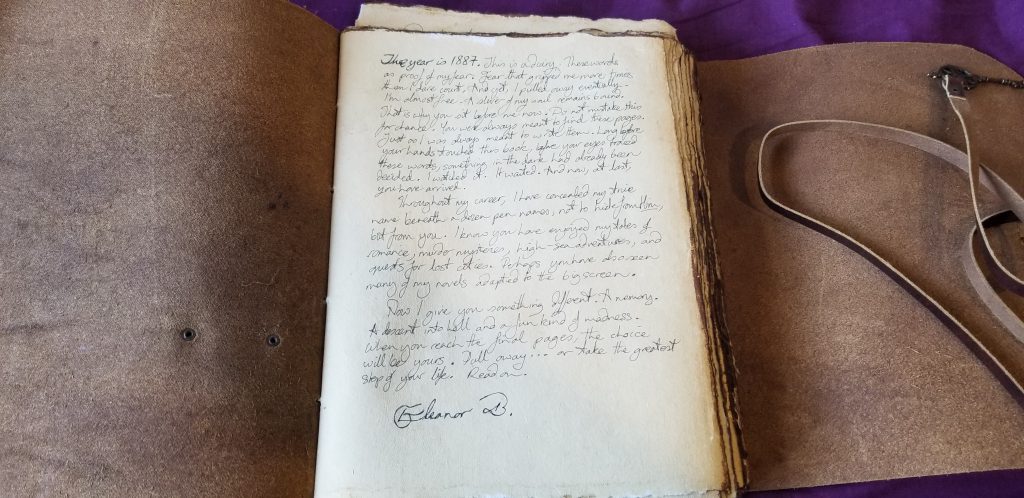 The year is 1887. This is a diary. These words
as proof of my fear. Fear that gripped me more times
than I dare count. And yet, I pulled away eventually.
I'm almost free. A sliver of my soul remains bound.
That is why you sit before me now. Do not mistake this
for chance. You were always meant to find these pages.
Just as I was always meant to write them. Long before
your hands touched this book, before your eyes traced
these words, something in the dark had already been
decided. I watched it. It waited. And now, at last,
you have arrived.
Throughout my career, I have concealed my true
name beneath a dozen pen names, not to hide from Him,
but from you. I know you have enjoyed my tales of
romance, murder mysteries, high-sea adventures, and
quests for lost cities. Perhaps you have also seen
many of my novels adapted to the big screen.
Now I give you something different. A memory.
A descent into hell and a fun kind of madness.
When you reach the final pages, the choice
will be yours. Pull away... or take the greatest
step of your life. Read on.
Eleanor B.